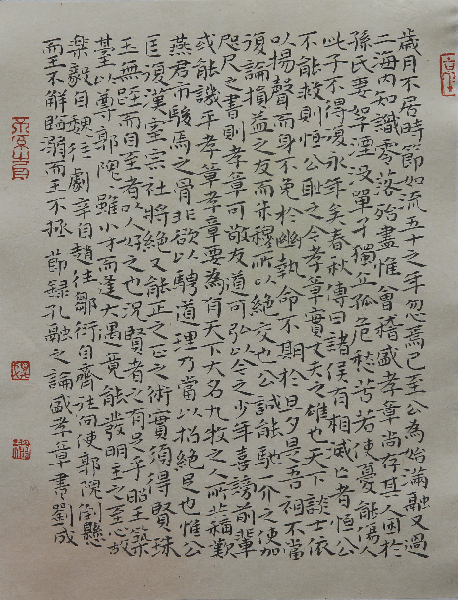 歲月不居時節如流五十之年忽焉已至公為始滿融又過
二海內知識零落殆盡惟會稽盛孝章尚存其人困於
孫氏妻孥湮沒單孑獨立孤危愁苦若使憂能傷人
此子不得復永年矣春秋傳曰諸侯有相滅亡者恒公
不能救則恒公恥之今孝章實丈夫之雄也天下談士依
以揚聲而身不免於幽執命不期於旦夕是吾祖不當
復論損益之友而朱穆所以絕交也公誠能馳一介之使加
咫尺之書則孝章可致友道可弘矣今之少年喜謗前輩
或能譏平孝章孝章要為有天下大名九牧之人所稱歎
燕君市駿馬之骨非欲以騁道理乃當以招絕足也惟公
匡復漢室宗社將絕又能正之正之術實須得賢珠
玉無脛而自至者以人好之也況賢者之有足乎昭王築
臺以尊郭隗隗雖小才而逢大遇竟能發明主之至心故
樂毅自魏往劇辛自趙往鄒衍自齊往向使郭隗倒懸
而王不解臨溺而王不拯 節錄孔融之論盛孝章書 劉成